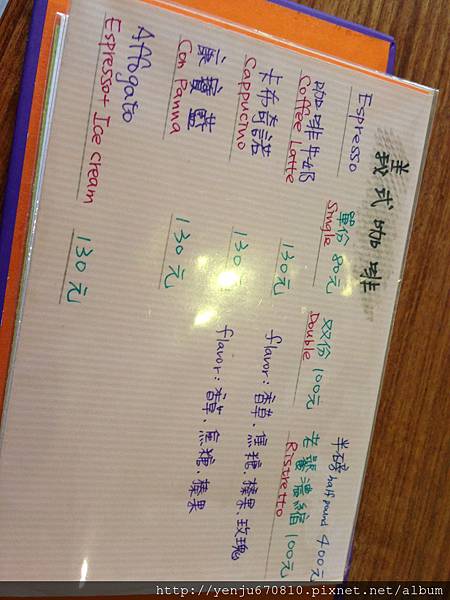 義式咖啡
半磅 half pound 400元
Espresso 單份 80元 双份 100元 老饕濃縮 100元
Single Double Ristretto
咖啡牛奶 130元 flavor: 香草、焦糖、榛果、玫瑰
Coffee Latte
卡布奇諾 130元 flavor: 香草、焦糖、榛果
Cappucino
康寶藍 130元
Con Panna
Affogato
Espresso+ Ice cream 130元
http://yenju670810.pixnet.net/album